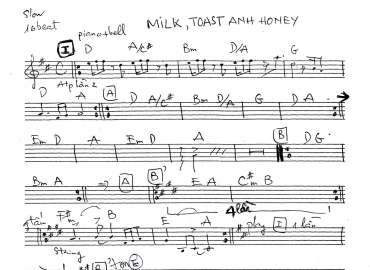 Slow
16beat
piano+bell
MILK, TOAST ANH HONEY
I D A/C# Bm D/A G
D A+plần2 A D A/C# Bm D/A G D A
Em D A Em D A B D G
Bm A ⇒ A B' E A C#m B
F#m B E A 4lần play I 1 lần
String